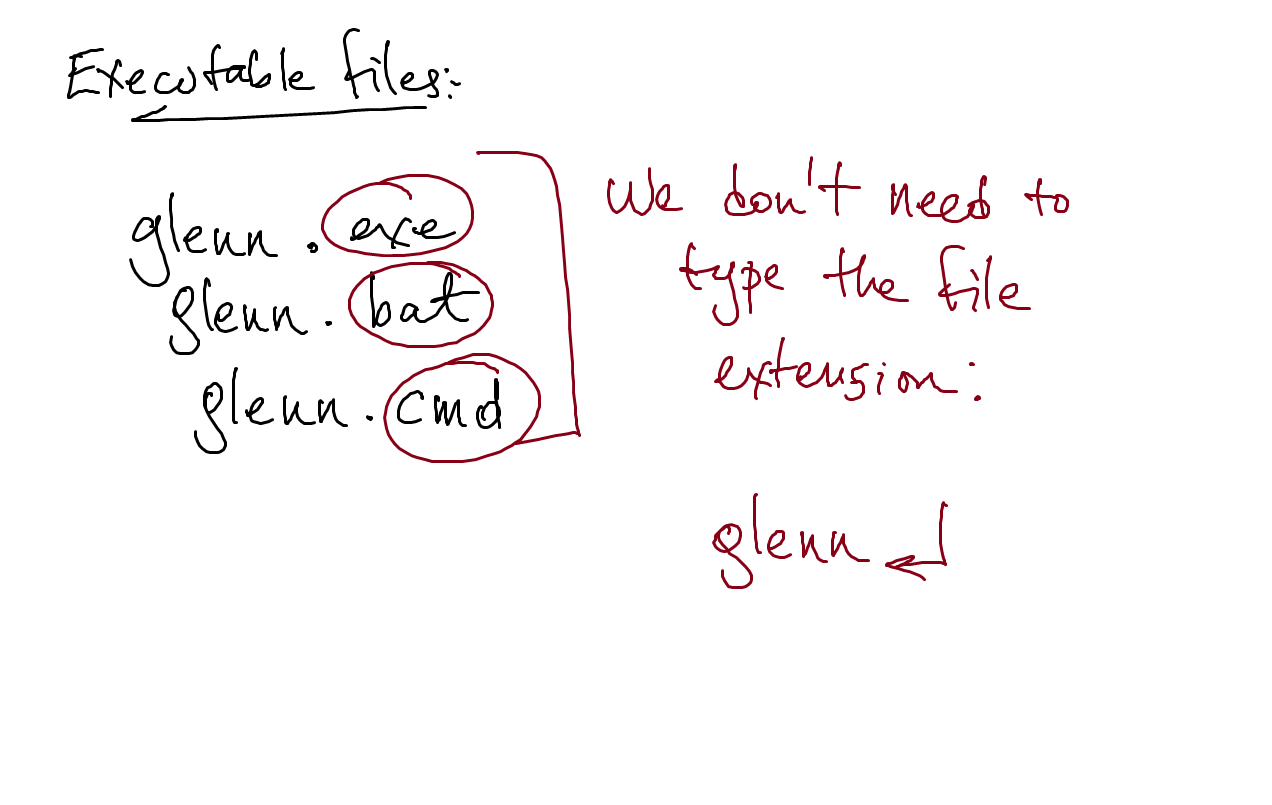 Executable files:-
glenn.exe
glenn.bat
glenn.cmd
We don't need to
type the file
extension:
glenn ↵